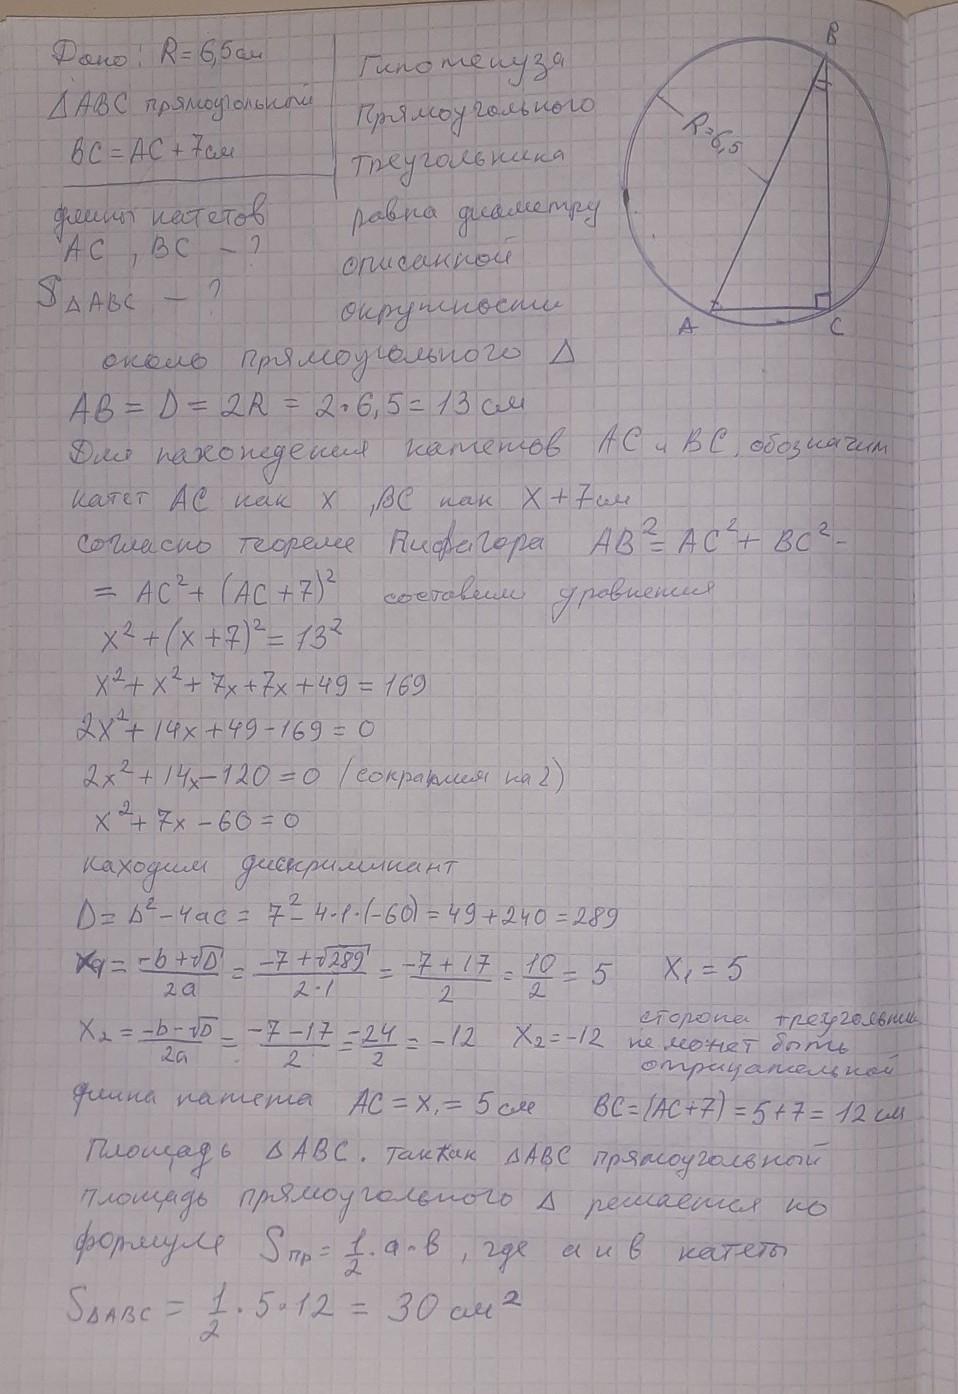 Дано: R = 6,5 см
ΔABC прямоугольный
BC = AC + 7 см
длины катетов
AC , BC - ?
S ΔABC - ?
Гипотенуза
Прямоугольного
треугольника
равна диаметру
описанной
окружности
около прямоугольного Δ
B
R=6,5
A
C
AB = D = 2R = 2·6,5 = 13 см
Для нахождения катетов AC и BC, обозначим
катет AC как x , BC как x + 7 см
согласно теореме Пифагора AB² = AC² + BC² -
= AC² + (AC + 7)² составим уравнения
x² + (x + 7)² = 13²
x² + x² + 7x + 7x + 49 = 169
2x² + 14x + 49 - 169 = 0
2x² + 14x - 120 = 0 (сократим на 2)
x² + 7x - 60 = 0
находим дискриминант
D = b² - 4ac = 7² - 4·1·(-60) = 49 + 240 = 289
x₁ = (-b + √D)/2a = (-7 + √289)/2·1 = (-7 + 17)/2 = 10/2 = 5 x₁ = 5
x₂ = (-b - √D)/2a = (-7 - 17)/2 = -24/2 = -12 x₂ = -12 сторона треугольник не может быть отрицательной
длина катета AC = x₁ = 5 см BC = (AC + 7) = 5 + 7 = 12 см
Площадь ΔABC. так как ΔABC прямоугольный
площадь прямоугольного Δ решается по
формуле Sпр = 1/2 · a · в , где a и в катеты
SΔABC = 1/2 · 5 · 12 = 30 см²